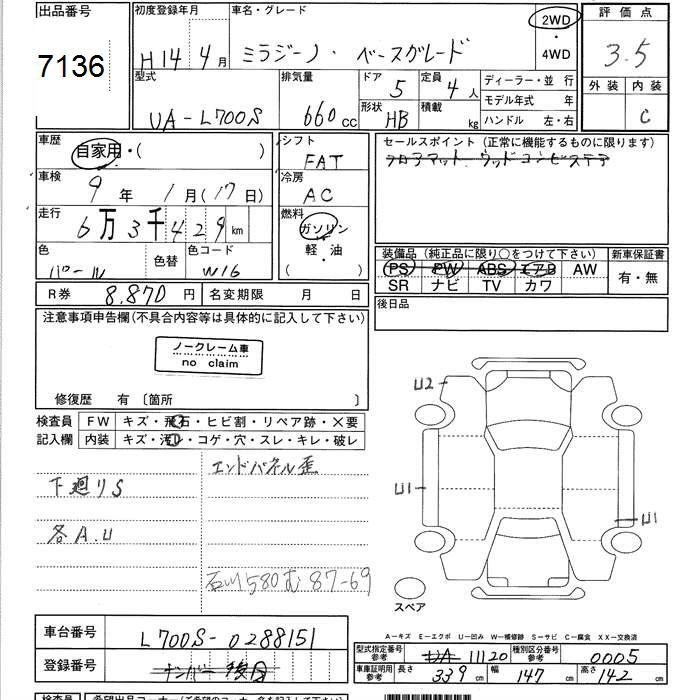 出品番号 初度登録年月 車名・グレード 2WD 評価点
7136 H14年4月 ミラジーノ・ベースグレード ・ 4WD 3.5
型式 排気量 ドア 定員 ディーラー・並行 外装 内装
UA-L700S 660cc 5 4人 モデル年式 年 C
形状 積載 ハンドル 左・右
HB kg
車歴 シフト セールスポイント (正常に機能するものに限ります)
自家用・( ) FAT フロアマット ウッドコンビステア
車検 9年 1月(17日) 冷房 AC
走行 6万3千429km 燃料 ガソリン・軽・油( )
色 パール 色替 色コード W16
装備品 (純正品に限り○をつけて下さい) 新車保証書
PS PW ABS エアB AW 有・無
SR ナビ TV カワ
R券 8,870円 名変期限 月 日 後日品
注意事項申告欄(不具合内容等は具体的に記入して下さい)
ノークレーム車
no claim
修復歴 有 〔箇所 〕
検査員 FW キズ・飛石・ヒビ割・リペア跡・×要
記入欄 内装 キズ・汚レ・コゲ・穴・スレ・キレ・破レ
エンドパネル歪
下廻りS
各A.U
石川580む87-69
U2
U1
U1
スペア
A-キズ E-エクボ U-凹み W-補修跡 S-サビ C-腐食 XX-交換済
車台番号 L700S-0288151
登録番号 ナンバー後日
型式指定番号 参考 UA 11120 種別区分番号 参考 0005
車庫証明用 参考 長さ 339cm 幅 147cm 高さ 142cm